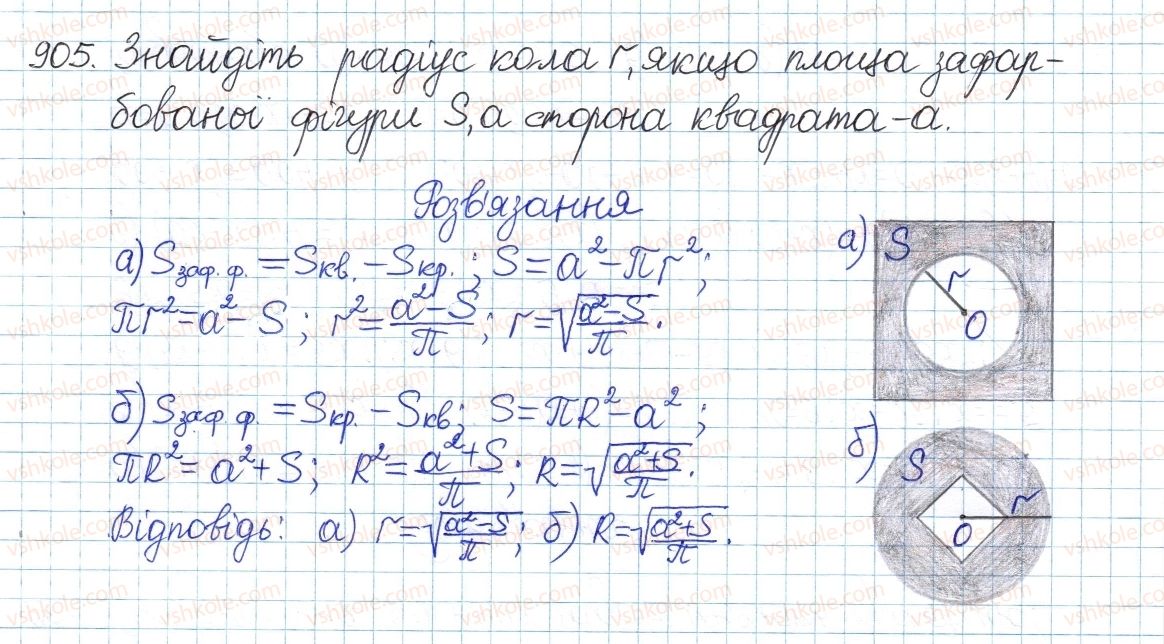 905. Знайдіть радіус кола r, якщо площа зафар-
бованої фігури S, а сторона квадрата - a.
Розв'язання
а) Sзаф. ф. = Sкв. - Sкр. ; S = a² - πr² ;
πr² = a² - S ; r² = (a² - S)/π ; r = √((a² - S)/π) .
б) Sзаф. ф. = Sкр. - Sкв ; S = πR² - a² ;
πR² = a² + S ; R² = (a² + S)/π ; R = √((a² + S)/π) .
Відповідь: а) r = √((a² - S)/π) ; б) R = √((a² + S)/π) .
а) S
r
O
б) S
r
O
vshkole.com